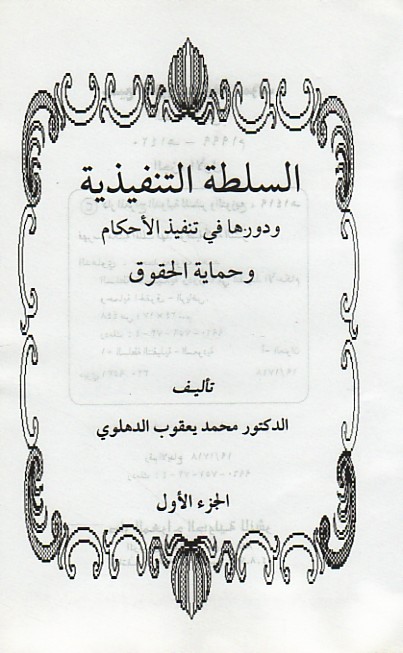 السلطة التنفيذية
ودورها في تنفيذ الأحكام
وحماية الحقوق
تأليف
الدكتور محمد يعقوب الدهلوي
الجزء الأول